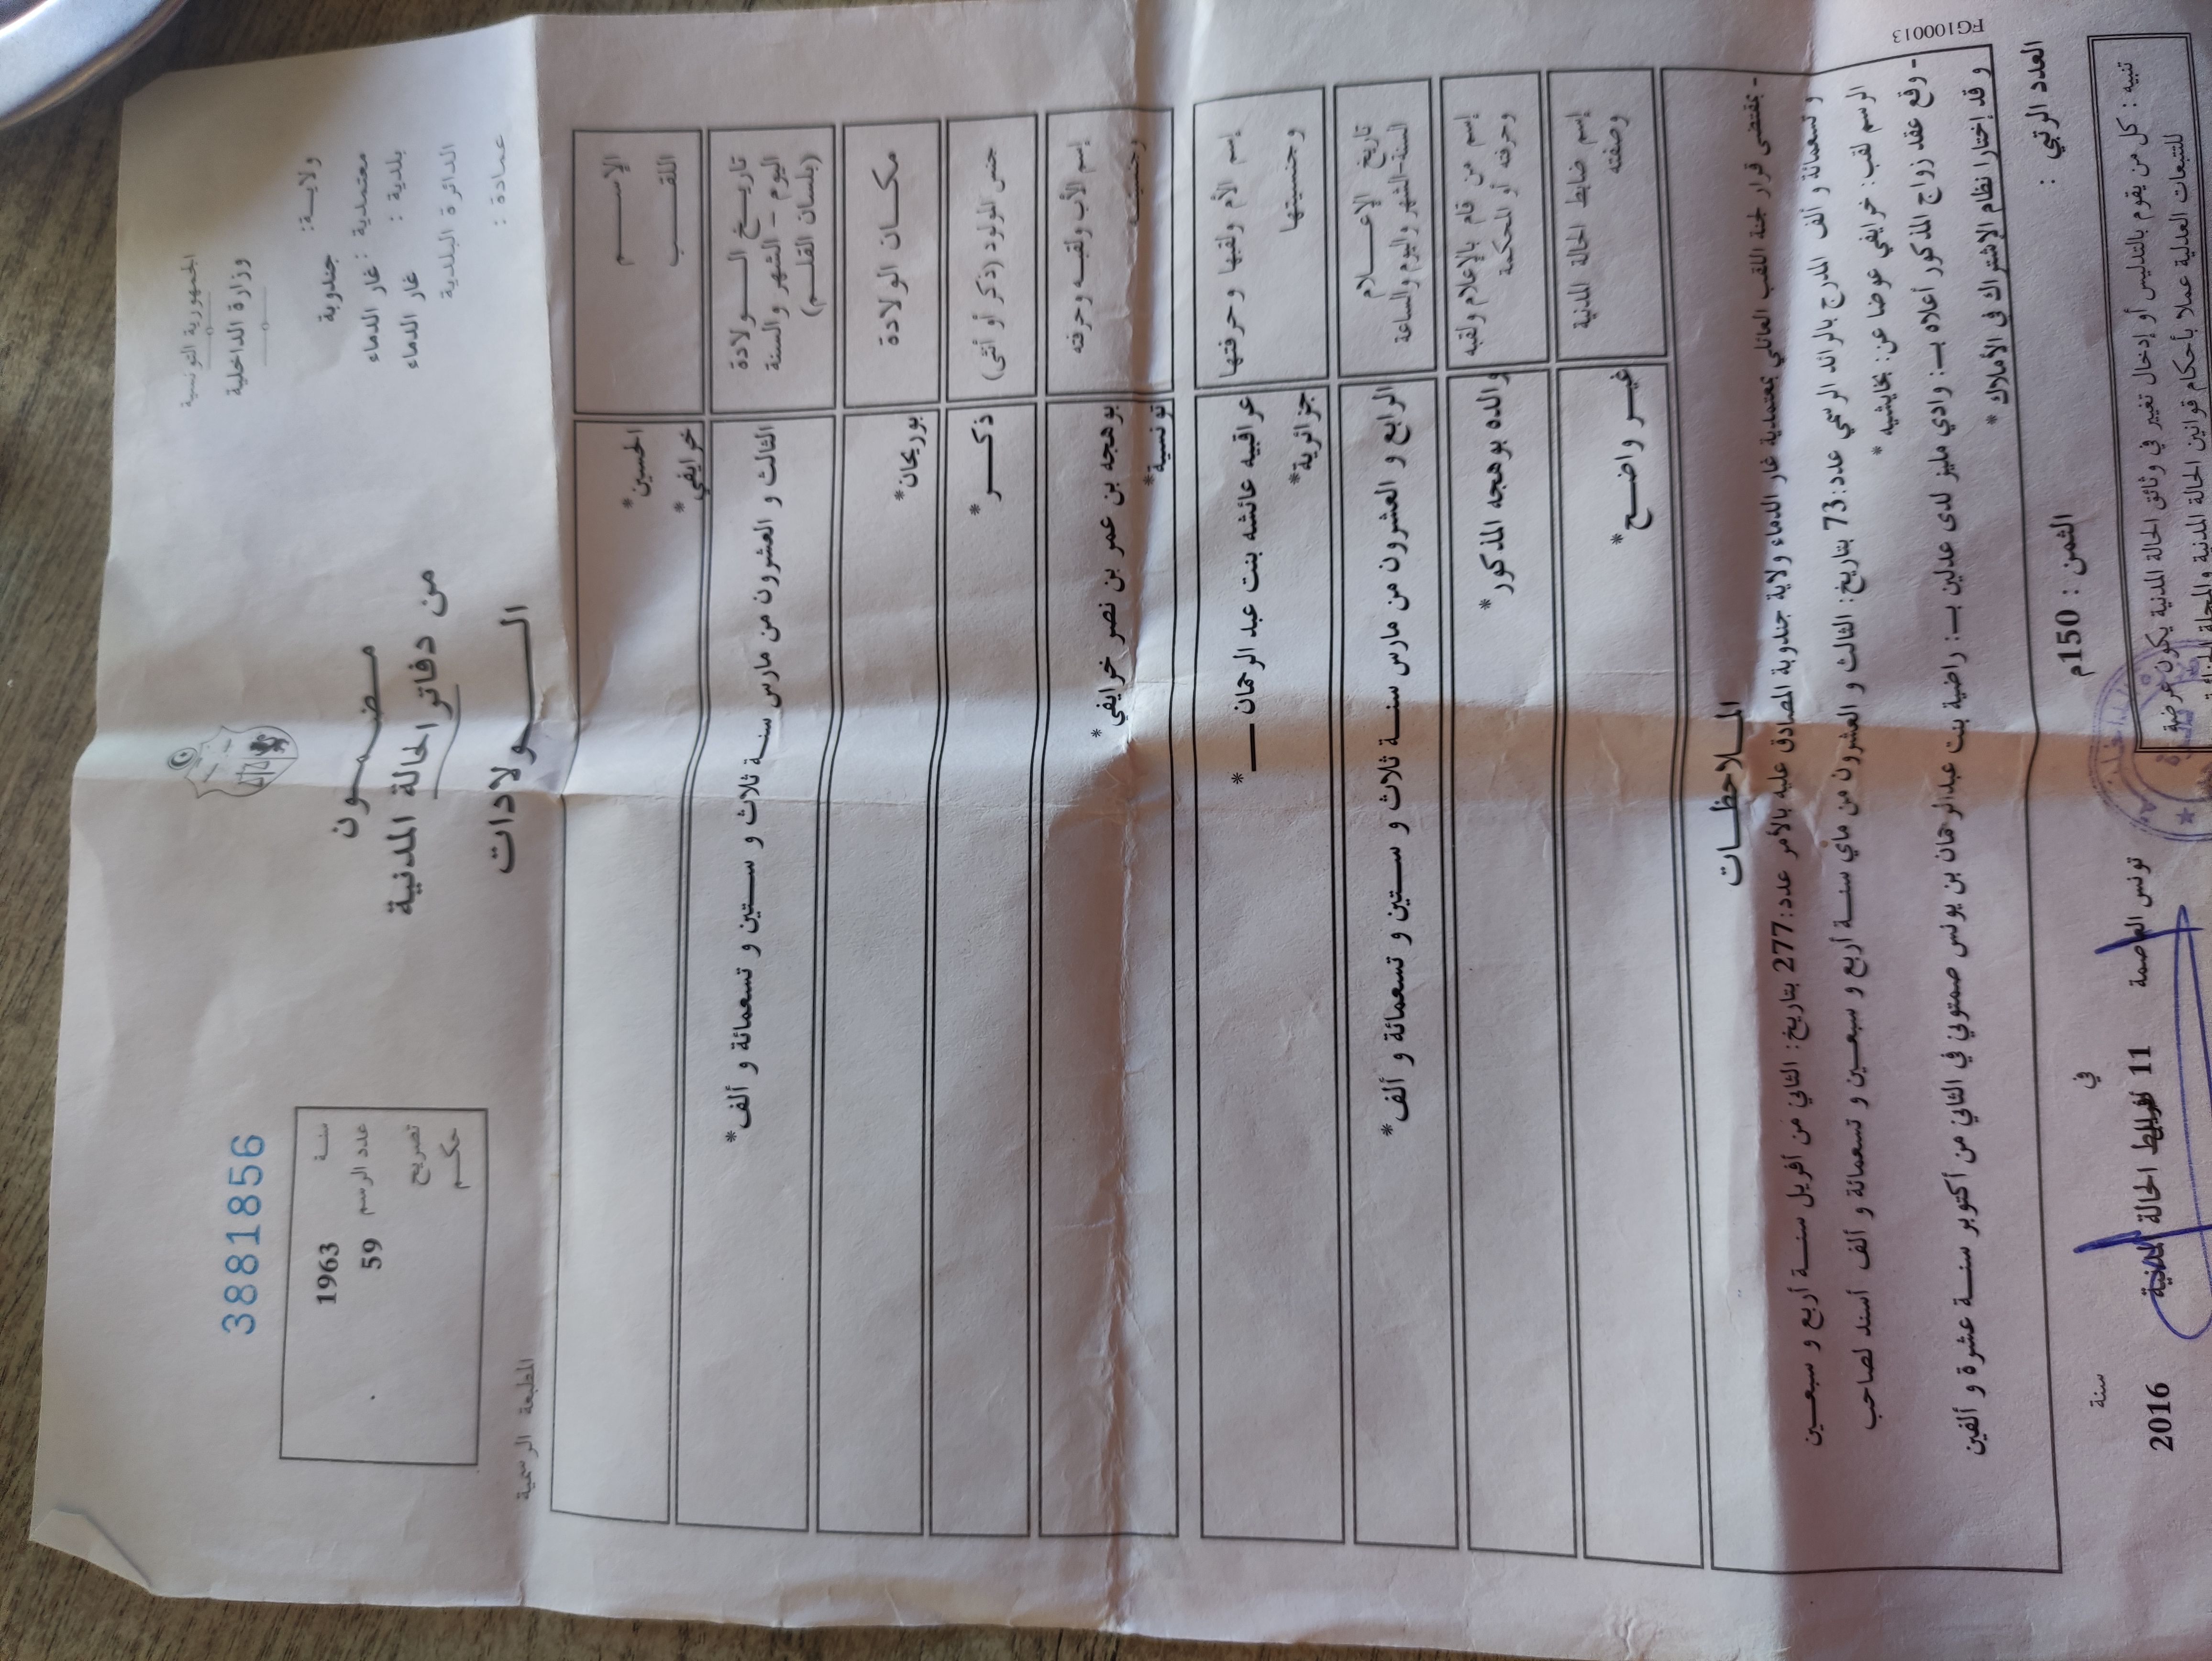 الجمهورية التونسية
وزارة الداخلية
ولايــة: جندوبة
معتمدية : غار الدماء
بلدية : غار الدماء
الدائرة البلدية
عمادة :
مـضـمـون
من دفاتر الحالة المدنية
الــــولادات
3881856
سنـة 1963
عدد الرسم 59
تصريح
حكـم
المطبعة الرسمية
الإســـم الحسين*
اللقـــب خرايفي*
تاريـــخ الـــولادة
اليوم - الشهر والسنة
(بلسان القلـــم)
الثالث و العشرون من مارس سنـة ثلاث و ستين و تسعمائة و ألف*
مكـــان الولادة بوريحان*
جنس المولود (ذكر أو أنثى) ذكـــر*
إسم الأب ولقبـه وحرفته بوهجه بن عمر بن نصر خرايفي*
وجنسيته تونسية*
إسم الأم ولقبها وحرفتها عراقبيه عائشه بنت عبد الرحمان ـــ*
وجنسيتها جزائرية*
تاريخ الإعـــلام
السنة-الشهر واليوم والساعة
الرابع و العشرون من مارس سنـة ثلاث و ستين و تسعمائة و ألف*
إسم من قام بالإعلام ولقبه
وحرفته أو المحكمة
والده بوهجه المذكور*
إسم ضابط الحالة المدنية
وصفته
غيـر واضـح*
الملاحظـات
- بمقتضى قرار لجنة اللقب العائلي بمعتمدية غار الدماء ولاية جندوبة المصادق عليه بالأمر عدد:277 بتاريخ: الثاني من أفريل سنـة أربع و سبعـين
و تسعمائة و ألف المدرج بالرائد الرسمي عدد:73 بتاريخ: الثالث و العشرون من ماي سنـة أربع و سبعـين و تسعمائة و ألف أسند لصاحب
الرسم لقب: خرايفي عوضا عن: بخايشيه*
- وقع عقد زواج المذكور أعلاه بـ: وادي مليز لدى عدلين بـ: راضية بنت عبدالرحمان بن يونس صمتوتي في الثاني من أكتوبر سنـة عشرة و ألفين
و قد إختارا نظام الإشتراك في الأملاك*
FG100013
العدد الرتبي :
الثمن : 150م
تنبيه : كل من يقوم بالتدليس أو إدخال تغيير في وثائق الحالة المدنية يكون عرضة
للتتبعات العدلية عملا بأحكام قوانين الحالة المدنية والمجلة
تونس العاصمة في 11 سنة 2016
ضابط الحالة المدنية